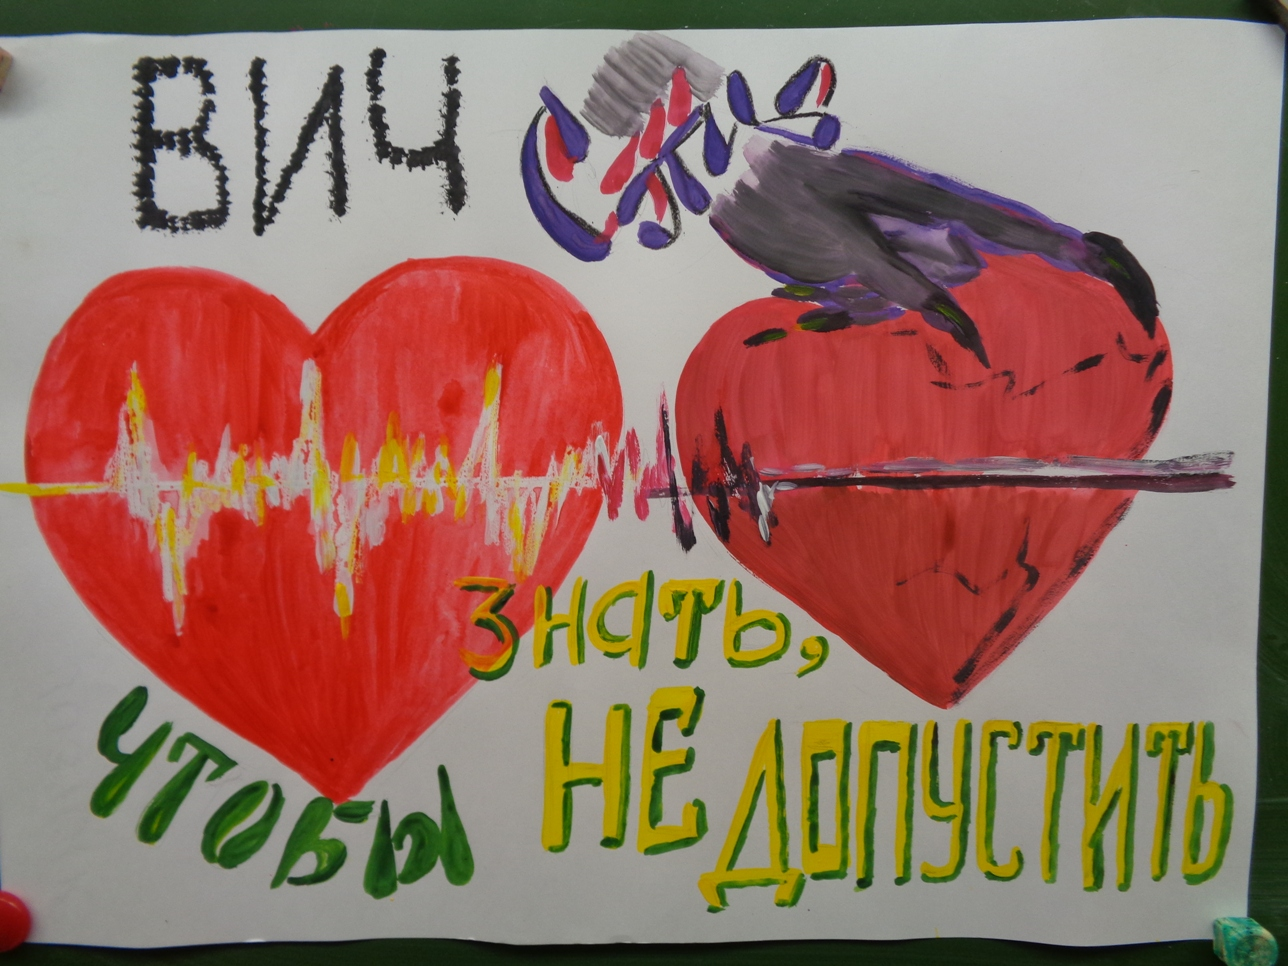 ВИЧ
знать,
чтобы
НЕ ДОПУСТИТЬ